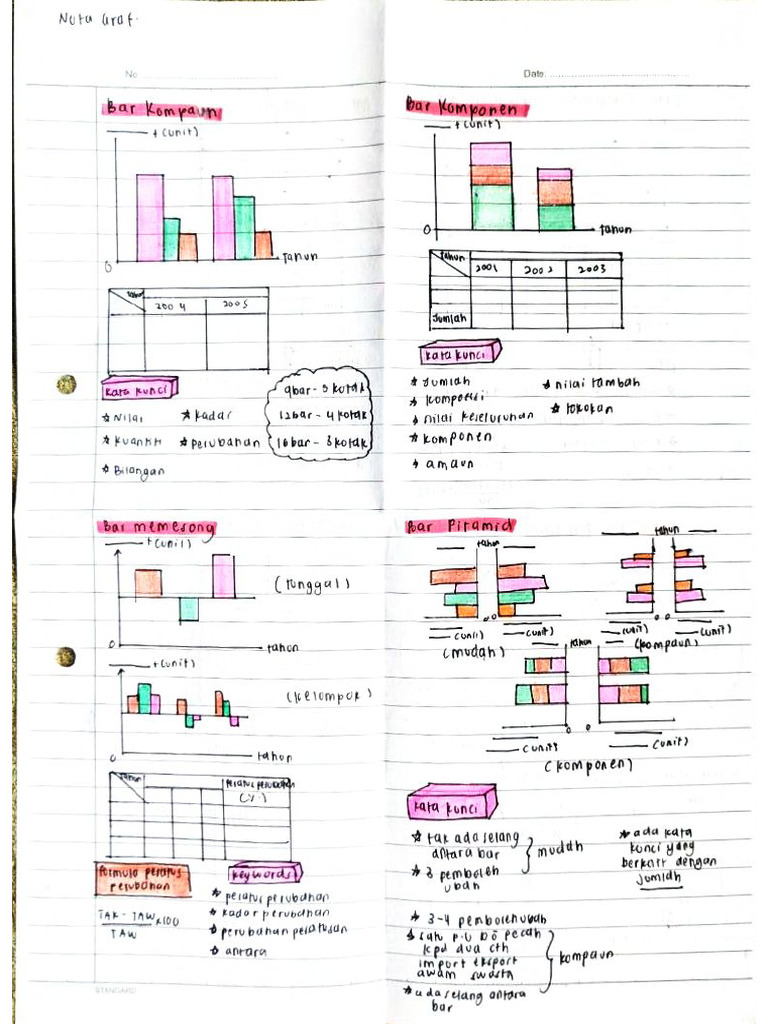 Nota Graf.
No
Date.
Bar Kompaun
+ (unit)
0
tahun
Tahun
2004
2005
kata kunci
* Nilai
* kadar
* kuantiti
* perubahan
* Bilangan
9bar - 5 kotak
12bar - 4 kotak
16bar - 3 kotak
Bar Komponen
+ (unit)
0
tahun
Tahun
2001
2002
2003
Jumlah
kata kunci
* Jumlah
* nilai tambah
* komposisi
* tokokan
* nilai keseluruhan
* komponen
* amaun
Bar memesong
+ (unit)
(tunggal)
0
tahun
+ (unit)
(kelompok)
0
tahun
Tahun
peratus perubahan
(%)
formula peratus
perubahan
TAK - TAW x100
TAW
keywords
* peratus perubahan
* kadar perubahan
* perubahan peratusan
* antara
STANDARD
Bar Piramid
tahun
0 0
(unit)
(unit)
(mudah)
tahun
0 0
(unit)
(unit)
(kompaun)
tahun
0 0
(unit)
(unit)
(komponen)
kata kunci
* tak ada selang
antara bar
* 3 pemboleh
ubah
mudah
* ada kata
kunci yang
berkait dengan
jumlah
* 3-4 pembolehubah
* satu p.u
pecah
kpd dua cth
import eksport
awam swasta
kompaun
* ada selang antara
bar